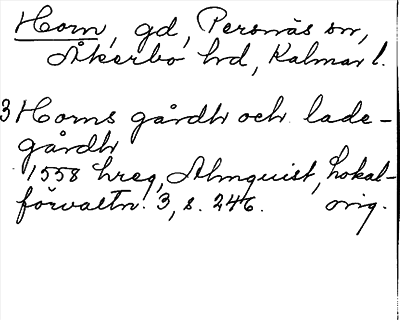 Horn, gd, Persnäs sn,
Åkerbo hd, Kalmar l.
3 Horns gårdh och lade-
gårdh
1558 hreg, Almquist, Lokal-
förvaltn. 3, s. 246. orig.